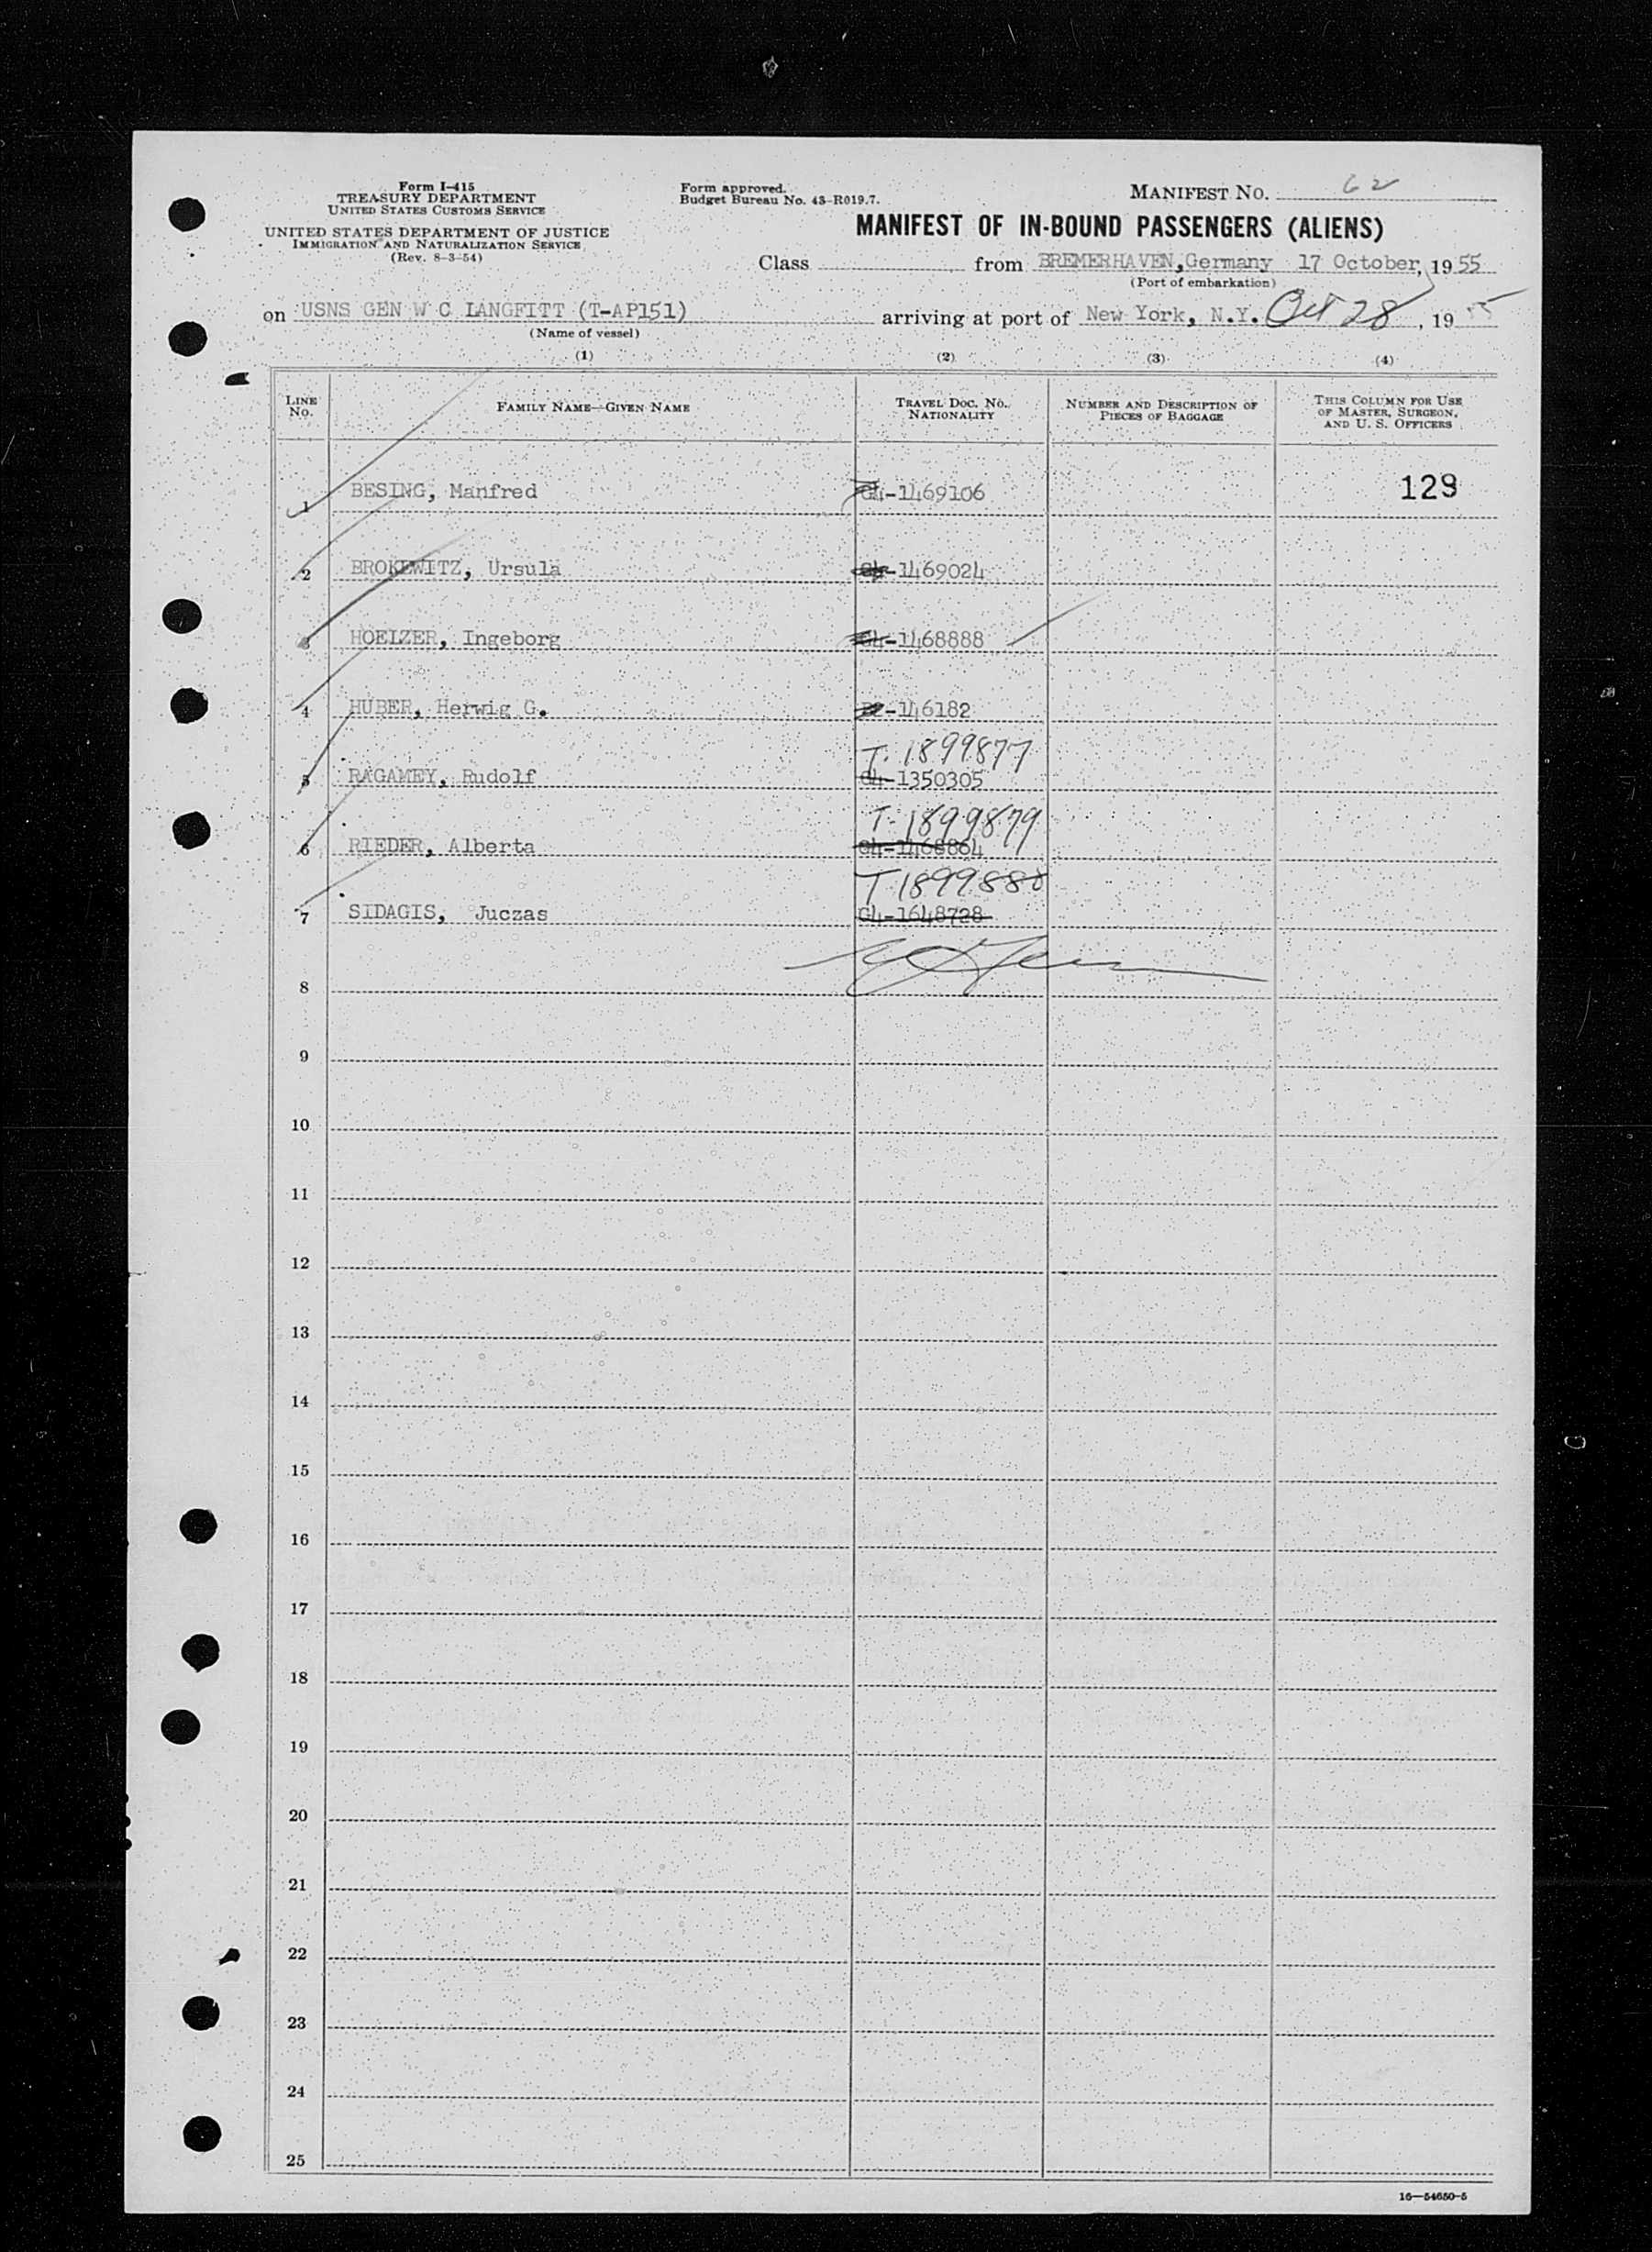 Form I-415
TREASURY DEPARTMENT
UNITED STATES CUSTOMS SERVICE
UNITED STATES DEPARTMENT OF JUSTICE
IMMIGRATION AND NATURALIZATION SERVICE
(Rev. 8-3-54)
Form approved.
Budget Bureau No. 43-R019.7.
MANIFEST NO. 62
MANIFEST OF IN-BOUND PASSENGERS (ALIENS)
Class from BREMERHAVEN, Germany 17 October, 1955
(Port of embarkation)
on USNS GEN W C LANGFITT (T-AP151) arriving at port of New York, N.Y. Oct 28, 1955
(Name of vessel)
(1) (2) (3) (4)
LINE NO. FAMILY NAME—GIVEN NAME TRAVEL DOC. NO. NATIONALITY NUMBER AND DESCRIPTION OF PIECES OF BAGGAGE THIS COLUMN FOR USE OF MASTER, SURGEON, AND U. S. OFFICERS
1 BESING, Manfred G4-1469106 129
2 BROKEWITZ, Ursula G4-1469024
3 HOELZER, Ingeborg G4-1468888
4 HUBER, Herwig G. -146182
T. 1899877
5 RAGAMEY, Rudolf G4-1350305
T. 1899879
6 RIEDER, Alberta G4-1468864
T 1899880
7 SIDAGIS, Juczas G4-1648728
8
9
10
11
12
13
14
15
16
17
18
19
20
21
22
23
24
25
16—54650-5